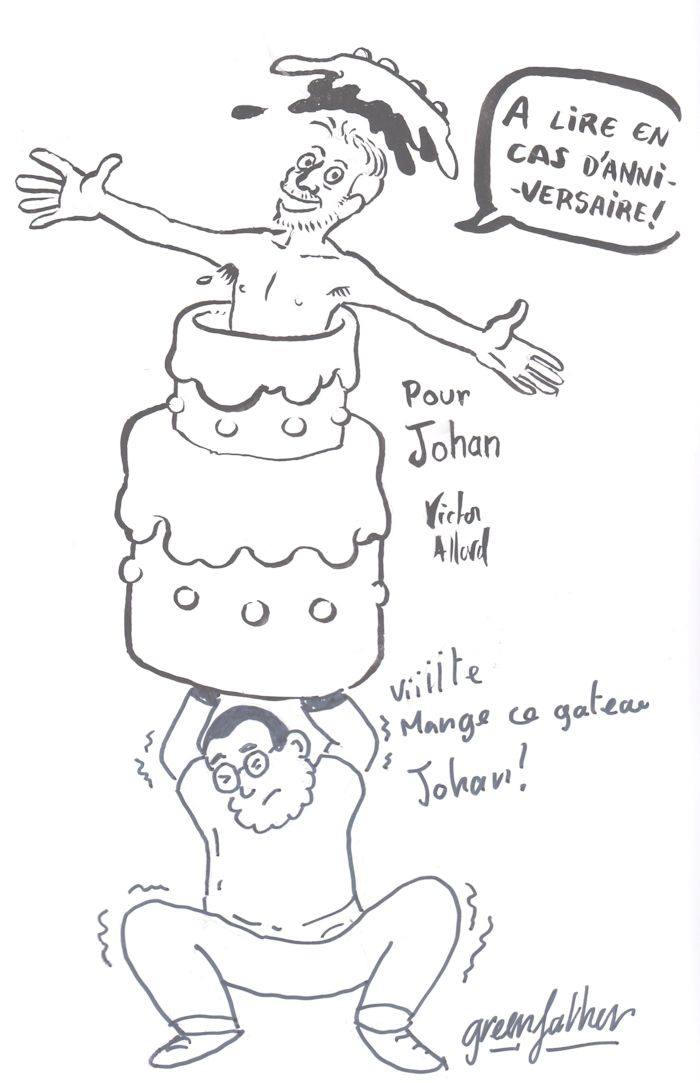 A LIRE EN
CAS D'ANNI-
-VERSAIRE!
Pour
Johan
Victor
Allard
Viiiite
Mange ce gateau
Johan!
greenfather